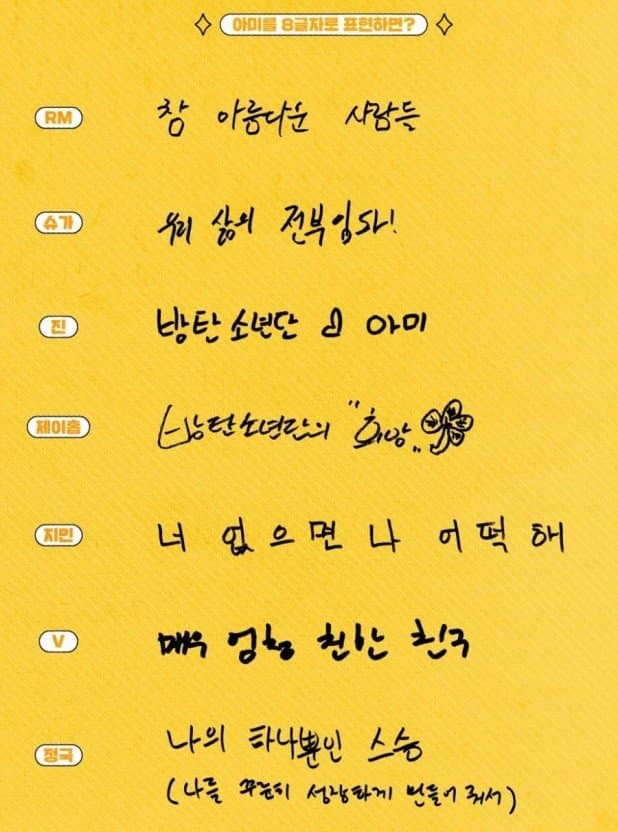 아미를 8글자로 표현하면?
RM
참 아름다운 사람들
슈가
우리 삶의 전부입니다!
진
방탄소년단 의 아미
제이홉
방탄소년단의 "희망"
지민
너 없으면 나 어떡해
V
매우 엄청 친한 친구
정국
나의 하나뿐인 스승
(나를 꾸준히 성장하게 만들어 줘서)